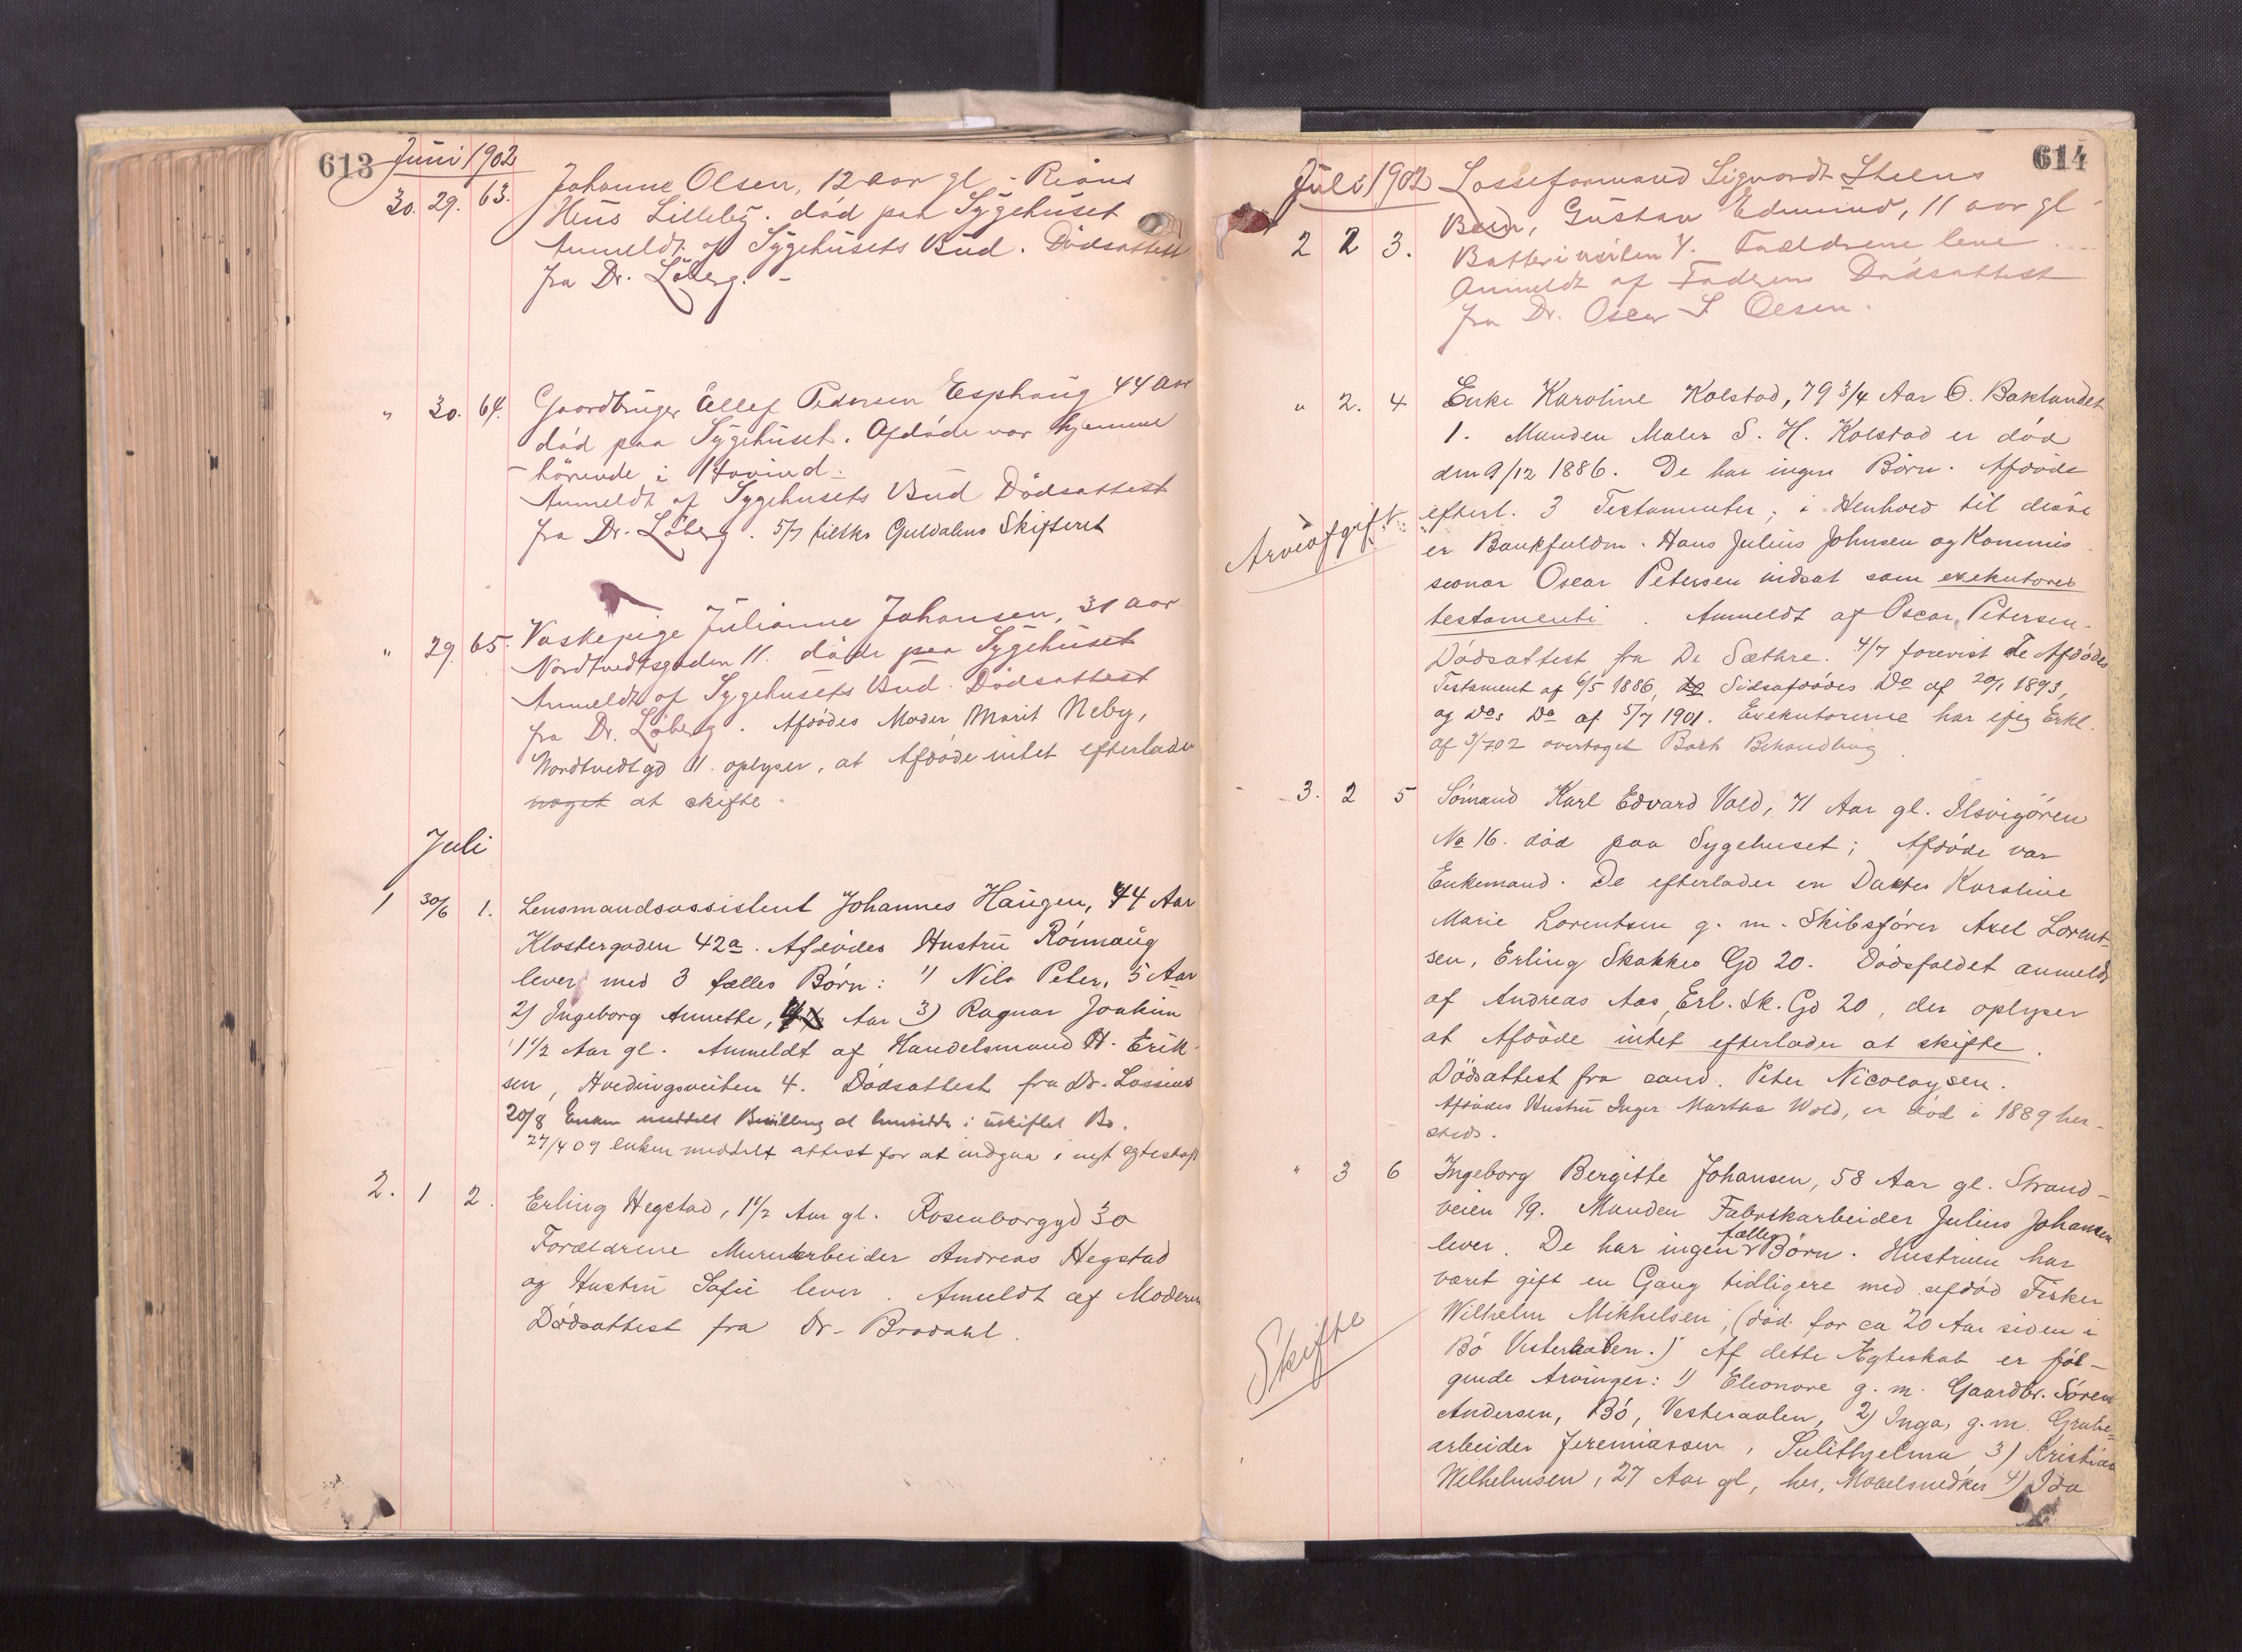 613 Juni 1902
30. 29. 63. Johanne Olsen, 12 aar gl - Rians
Hus Lilleby. död paa Sygehuset
Anmeldt af Sygehusets Bud. Dödsattest
fra Dr. Löberg. -
" 30. 64. Gaardbruger Ellef Pedersen Esphaug 44 aar
död paa Sygehuset. Afdöde var hjemme
hörende i Hovind.
Anmeldt af Sygehusets Bud Dödsattest
fra Dr. Löberg. 5/7 tilskr Guldalens Skifteret
" 29. 65. Vaskepige Julianne Johansen, 31 aar
Nordtvedtsgaden 11. döde paa Sygehuset
Anmeldt af Sygehusets Bud. Dödsattest
fra Dr. Löberg. Afdödes Moder Marit Neby,
Nordtvedtgd 11. oplyser, at Afdöde intet efterlader
noget at skifte.
Juli
1 30/6 1. Lensmandsassistent Johannes Haugen, 44 Aar
Klostergaden 42a. Afdödes Hustru Rönnaug
lever med 3 fælles Börn: 1) Nils Peter, 5 Aar
2) Ingeborg Annette, Aar 3) Ragnar Joakim
1 1/2 Aar gl. Anmeldt af Handelsmand H. Erik-
sen, Hvedingsveiten 4. Dödsattest fra Dr. Lossius
20/8 Enken meddelt Bevilling at hensidde i uskiftet Bo.
27/4 09 enken meddelt attest for at indgaa i nyt egteskap
2. 1 2. Erling Hegstad, 1 1/2 Aar gl. Rosenborggd 30
Forældrene Murerarbeider Andreas Hegstad
og Hustru Sofie lever. Anmeldt af Moderen
Dödsattest fra Dr. Brodahl.
614
Juli 1902 Losseformand Sigvardt Steens
2 2 3. Barn, Gustav Edmund, 11 aar gl -
Batteriveiten 4. Forældrene leve.
Anmeldt af Faderen Dödsattest
fra Dr. Oscar S Olsen.
" 2. 4 Enke Karoline Kolstad, 79 3/4 Aar Ö. Baklandet
1. Manden Maler S. H. Kolstad er död
den 9/12 1886. De har ingen Börn. Afdöde
Arveafgift efterl. 3 Testamenter; i Henhold til disse
er Bankfuldm. Hans Julius Johnsen og Kommis
sionær Oscar Petersen indsat som exekutores
testamenti. Anmeldt af Oscar Petersen.
Dödsattest fra Dr Sæthre. 4/7 forevist De Afdödes
Testament af 6/5 1886, Sidsafdödes Do af 20/1 1893,
og Do's Do af 5/7 1901. Exekutorerne har ifg Erkl.
af 3/7 02 overtaget Boets Behandling.
3. 2 5 Sömand Karl Edvard Vold, 71 Aar gl. Ilsvigören
No 16. död paa Sygehuset; Afdöde var
Enkemand. De efterlader en Datter Karoline
Marie Lorentsen g. m. Skibsförer Axel Lorent-
sen, Erling Skakkes Gd 20. Dödsfaldet anmeldt
af Andreas Aas, Erl. Sk. Gd 20, der oplyser
at Afdöde intet efterlader at skifte.
Dödsattest fra cand. Peter Nicolaysen.
Afdödes Hustru Inger Martha Wold, er död i 1889 her-
steds.
" 3 6 Ingeborg Bergitte Johansen, 58 Aar gl. Strand-
veien 19. Manden Fabrikarbeider Julius Johansen
lever. De har ingen fælles Börn. Hustruen har
været gift en Gang tidligere med afdöd Fisker
Wilhelm Mikkelsen; (död for ca 20 Aar siden i
Skifte Bö Vesteraalen.) Af dette Ægteskab er föl-
gende Arvinger: 1) Eleonore g. m. Gaardbr. Sören
Andersen, Bö, Vesteraalen, 2) Inga, g. m. Grube-
arbeider Jeremiassen, Sulithjelma, 3) Kristian
Wilhelmsen, 27 Aar gl, her, Möbelsnedker 4) Ida